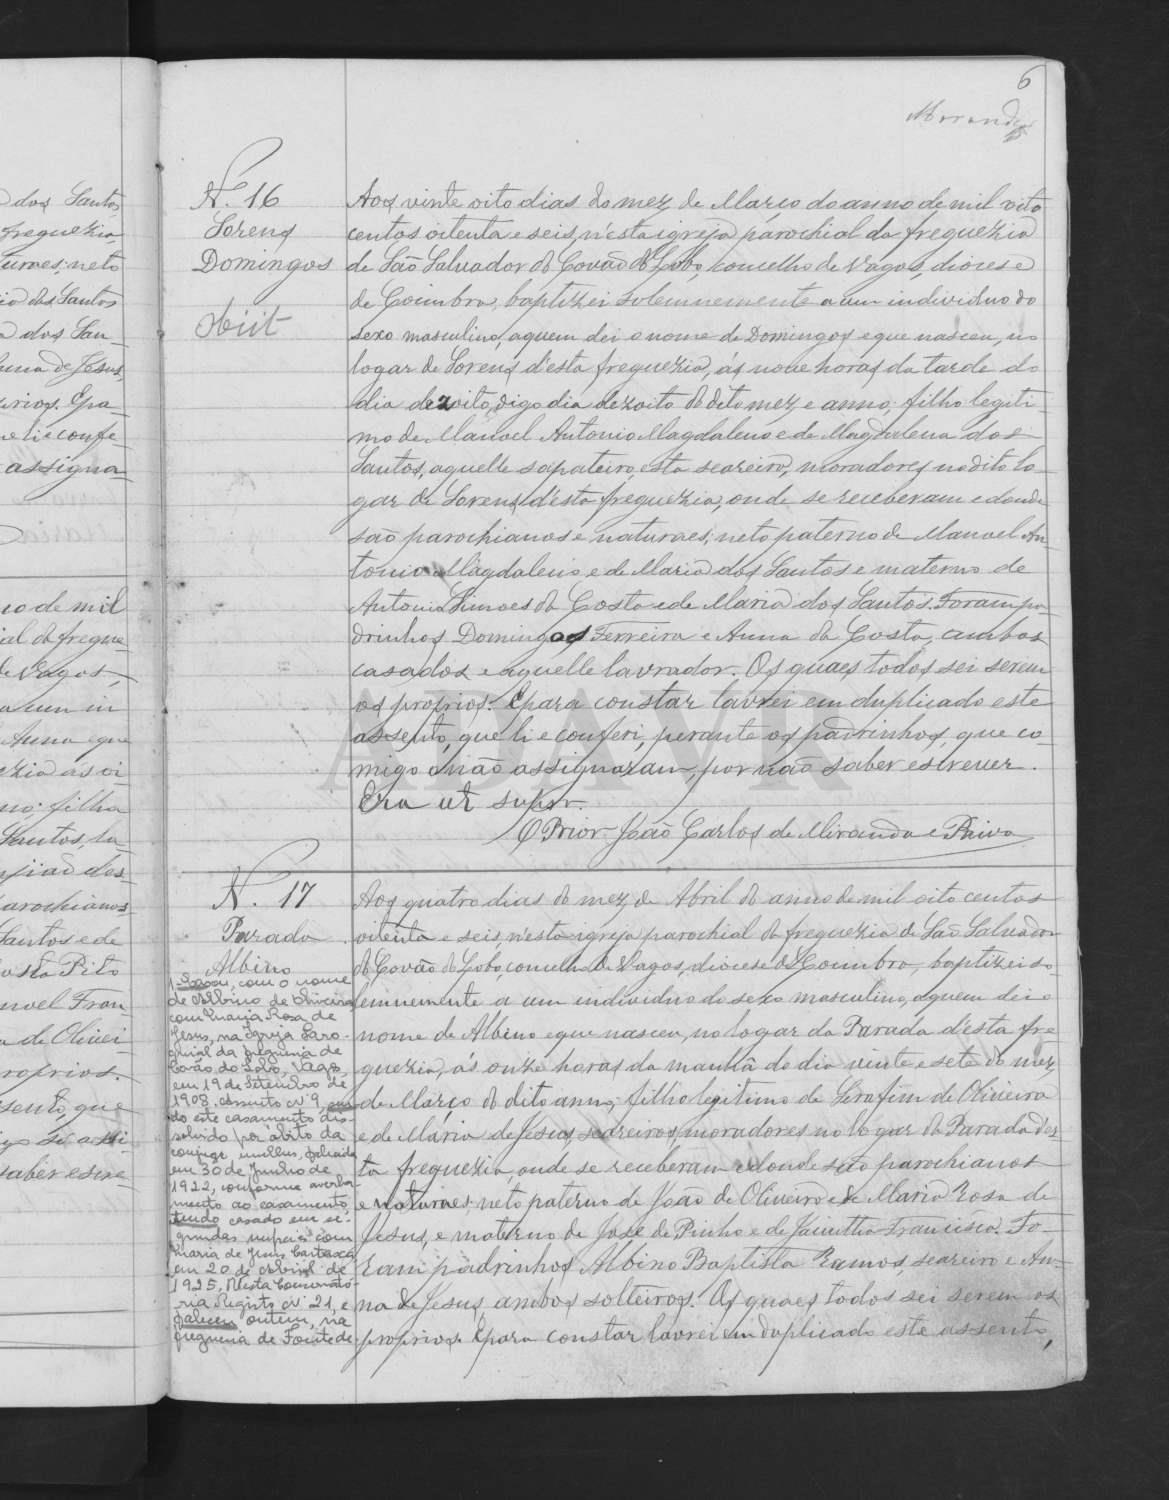 6
Miranda
N. 16
Sorens
Domingos
Obiit
Aos vinte oito dias do mez de Março do anno de mil oito
centos oitenta e seis, n'esta igreja parochial da freguezia
de São Salvador do Covão do Lobo, concelho de Vagos, diocese
de Coimbra, baptizei solemnemente a um individuo do
sexo masculino, aquem dei o nome de Domingos e que nasceu, no
logar de Sorens d'esta freguezia, ás nove horas da tarde do
dia dezoito, digo dia dezoito do dito mez e anno; filho legiti-
mo de Manoel Antonio Magdaleno e de Magdalena dos
Santos, aquelle sapateiro, esta seareira, moradores no dito lo-
gar de Sorens d'esta freguezia, onde se receberam e donde
são parochianos e naturaes; neto paterno de Manoel An-
tonio Magdaleno, e de Maria dos Santos e materno de
Antonio Simoes da Costa e de Maria dos Santos. Foram pa-
drinhos Domingos Ferreira e Anna da Costa, ambos
casados e aquelle lavrador. Os quaes todos sei serem
os proprios. E para constar lavrei em duplicado este
assento, que li e conferi, perante os padrinhos, que co-
migo não assignaram, por não saber escrever.
Era ut supra.
O Prior João Carlos de Miranda e Paiva
N. 17
Parada
Albino
Aos quatro dias do mez de Abril do anno de mil oito centos
oitenta e seis, n'esta igreja parochial da freguezia de São Salvador
do Covão do Lobo, concelho de Vagos, diocese de Coimbra, baptizei so-
lemnemente a um individuo do sexo masculino, aquem dei o
nome de Albino e que nasceu, no logar da Parada d'esta fre
guezia, ás onze horas da manhã do dia vinte e sete do mez
de Março do dito anno; filho legitimo de Serafim de Oliveira
e de Maria de Jesus, seareiros, moradores no logar da Parada d'es-
ta freguezia, onde se receberam e donde são parochianos
e naturaes; neto paterno de João de Oliveira e de Maria Rosa de
Jesus, e materno de José de Pinho e de Jacintha Francisca. Fo-
ram padrinhos Albino Baptista Ramos, seareiro e An-
na de Jesus, ambos solteiros. Os quaes todos sei serem os
proprios. E para constar lavrei em duplicado este assento,
1- Casou, com o nome
de Albino de Oliveira,
com Maria Rosa de
Jesus, na Igreja Paro-
quial da freguesia de
Covão do Lobo, Vagos,
em 19 de Setembro de
1908, assento nº 9, sen-
do este casamento dis-
solvido por óbito da
conjuge mulher, falecida
em 30 de Junho de
1922, conforme averba-
mento ao casamento,
tendo casado em se-
gundas nupcias com
Maria de Jesus Cartaxa
em 20 de Abril de
1925, Nesta Conservató-
ria Registo nº 21, e
faleceu ontem, na
freguesia de Fonte de
dos Santos
freguezia
turaes; neto
dos Santos
dos San-
de Jesus,
Epa-
e li e confe
assigna-
no de mil
ial da fregue
de Vagos,
a um in
Anna e que
filha
Santos, la-
des-
arochianos
Santos e de
osta Pito
noel Fran-
a de Olivei-
roprios.
sento, que
saber escre-
ADAVR